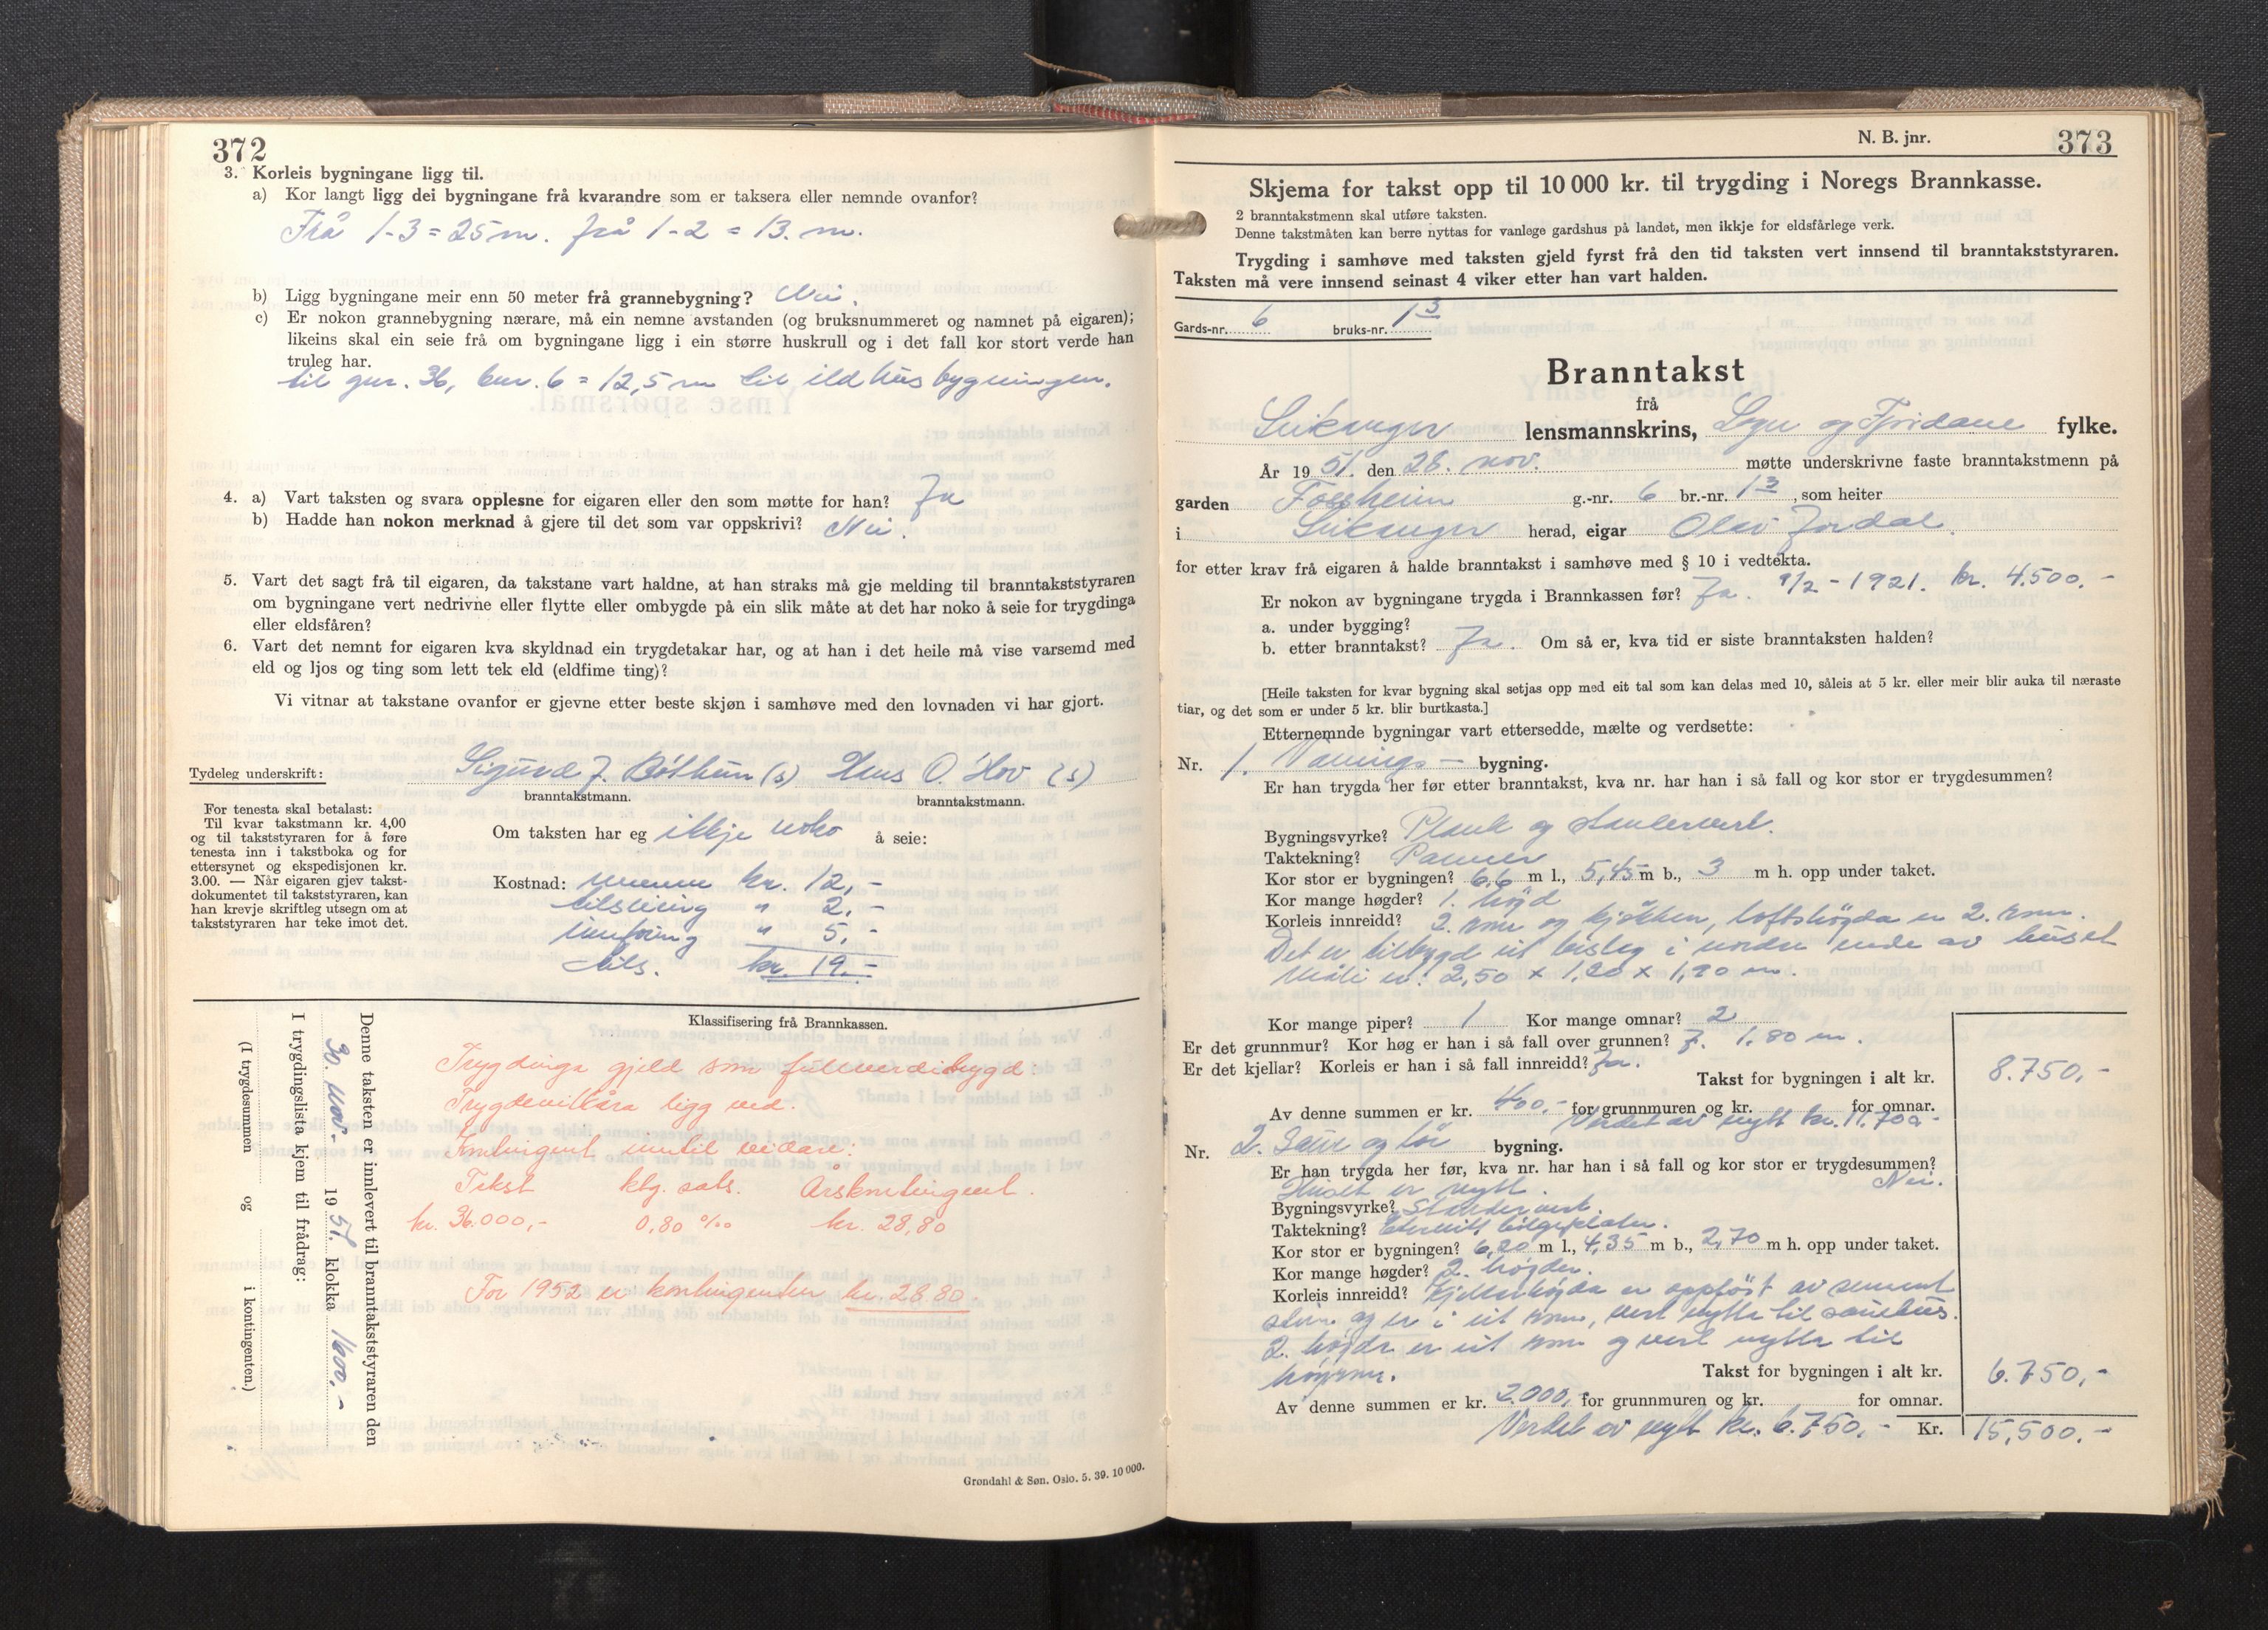 372
3. Korleis bygningane ligg til.
a) Kor langt ligg dei bygningane frå kvarandre som er taksera eller nemnde ovanfor?
Frå 1-3 = 25 m. frå 1-2 = 13. m.
b) Ligg bygningane meir enn 50 meter frå grannebygning? Nei.
c) Er nokon grannebygning nærare, må ein nemne avstanden (og bruksnummeret og namnet på eigaren);
likeins skal ein seie frå om bygningane ligg i ein større huskrull og i det fall kor stort verde han
truleg har.
til gnr. 36, bnr. 6 = 12,5 m til ildhusbygningen.
4. a) Vart taksten og svara opplesne for eigaren eller den som møtte for han? Ja
b) Hadde han nokon merknad å gjere til det som var oppskrivi? Nei.
5. Vart det sagt frå til eigaren, da takstane vart haldne, at han straks må gje melding til branntakststyraren
om bygningane vert nedrivne eller flytte eller ombygde på ein slik måte at det har noko å seie for trygdinga
eller eldsfåren?
6. Vart det nemnt for eigaren kva skyldnad ein trygdetakar har, og at han i det heile må vise varsemd med
eld og ljos og ting som lett tek eld (eldfime ting)?
Vi vitnar at takstane ovanfor er gjevne etter beste skjøn i samhøve med den lovnaden vi har gjort.
Tydeleg underskrift: Sigurd J. Bøthun (s) Hans O. Hov (s)
branntakstmann. branntakstmann.
For tenesta skal betalast:
Til kvar takstmann kr. 4,00
og til takststyraren for å føre
tenesta inn i takstboka og for
ettersynet og ekspedisjonen kr.
3.00. — Når eigaren gjev takst-
dokumentet til takststyraren, kan
han krevje skriftleg utsegn om at
takststyraren har teke imot det.
Om taksten har eg ikkje noko å seie:
Kostnad: menn kr. 12,-
tilsteling " 2,-
innføring " 5,-
tils. kr. 19.-
Klassifisering frå Brannkassen.
Trygdinga gjeld som fullverditrygd:
Trygdevilkåra ligg ved.
Kontingent inntil vidare:
Takst ktg. sats. Årskontingent.
kr. 36.000,- 0,80 ‰ kr. 28,80
For 1952 er kontingenten kr. 28.80.
Denne taksten er innlevert til branntakststyraren den
30. nov. 1951. klokka 1600,-
I trygdingslista kjem til frådrag:
(I trygdesummen og i kontingenten.)
Grøndahl & Søn. Oslo. 5. 39. 10 000.
N. B. jnr. 373
Skjema for takst opp til 10 000 kr. til trygding i Noregs Brannkasse.
2 branntakstmenn skal utføre taksten.
Denne takstmåten kan berre nyttas for vanlege gardshus på landet, men ikkje for eldsfårlege verk.
Trygding i samhøve med taksten gjeld fyrst frå den tid taksten vert innsend til branntakststyraren.
Taksten må vere innsend seinast 4 viker etter han vart halden.
Gards-nr. 6 bruks-nr. 13
Branntakst
frå
Leikanger lensmannskrins, Sogn og Fjordane fylke.
År 1951. den 28. nov. møtte underskrivne faste branntakstmenn på
garden Fossheim g.-nr. 6 br.-nr. 13, som heiter
i Leikanger herad, eigar Olav Jordal.
for etter krav frå eigaren å halde branntakst i samhøve med § 10 i vedtekta.
Er nokon av bygningane trygda i Brannkassen før? Ja. 9/2 - 1921. kr. 4.500.-
a. under bygging?
b. etter branntakst? Ja. Om så er, kva tid er siste branntaksten halden?
[Heile taksten for kvar bygning skal setjas opp med eit tal som kan delas med 10, såleis at 5 kr. eller meir blir auka til næraste
tiar, og det som er under 5 kr. blir burtkasta.]
Etternemnde bygningar vart ettersedde, mælte og verdsette:
Nr. 1. Vånings- bygning.
Er han trygda her før etter branntakst, kva nr. har han i så fall og kor stor er trygdesummen?
Bygningsvyrke? Plank og stenderverk.
Taktekning? Panner
Kor stor er bygningen? 6,6 m l., 5,45 m b., 3 m h. opp under taket.
Kor mange høgder? 1. høgd
Korleis innreidd? 2. rom og kjøkken, loftshøgda er 2. rom.
Det er tilbygd eit bislag i nordre ende av huset
Måli er: 2,50 x 1,20 x 1,90 m.
Kor mange piper? 1 Kor mange omnar? 2
Er det grunnmur? Kor høg er han i så fall over grunnen? J. 1.80 m.
Er det kjellar? Korleis er han i så fall innreidd? Ja.
Takst for bygningen i alt kr. 8.750,-
Av denne summen er kr. 400,- for grunnmuren og kr. for omnar.
Verdet av nytt kr. 11.700-
Nr. 2. Saue og løe bygning.
Er han trygda her før, kva nr. har han i så fall og kor stor er trygdesummen?
Huset er nytt. Nei.
Bygningsvyrke? Stenderverk.
Taktekning? Eternitt bølgeplater.
Kor stor er bygningen? 6,20 m l., 4,35 m b., 2,70 m h. opp under taket.
Kor mange høgder? 2. høgder.
Korleis innreidd? Kjellarhøgda er oppført av sement
stein og er i eit rom, vert nytta til sauehus.
2. høgda er eit rom og vert nytta til
høyrom.
Takst for bygningen i alt kr. 6.750,-
Av denne summen er kr. 2.000,- for grunnmuren og kr. for omnar.
Verdet av nytt kr. 6.750,- Kr. 15,500.-